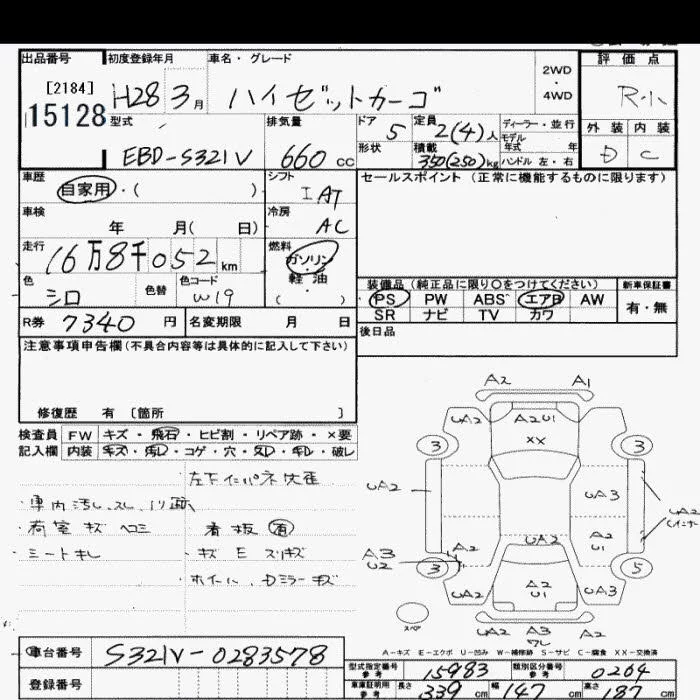 出品番号 初度登録年月 車名・グレード 2WD 4WD 評価点
[2184]
15128
H28 3月 ハイゼットカーゴ R・ハ
型式 排気量 ドア 定員 ディーラー・並行 外装 内装
EBD-S321V 660cc 5 2(4)人 モデル年式 年 D C
形状 積載 350(250)kg ハンドル 左・右
車歴 シフト セールスポイント (正常に機能するものに限ります)
自家用・( ) I AT
車検 冷房
年 月( 日) AC
走行 燃料
16万8千052km ガソリン・軽油・( )
色 色替 色コード 装備品(純正品に限り○をつけてください) 新車保証書
シロ W19 PS PW ABS エアB AW 有・無
R券 7340円 名変期限 月 日 SR ナビ TV カワ
注意事項申告欄(不具合内容等は具体的に記入して下さい) 後日品
修復歴 有〔箇所 〕
検査員 FW キズ・飛石・ヒビ割・リペア跡・×要
記入欄 内装 キズ・汚レ・コゲ・穴・スレ・キレ・破レ
左下インパネ欠
・車内汚レ、スレ、ノリ跡
・荷室キズ ヘコミ 看板(有)
・シートキレ ・キズ E スリキズ
・ホイール、Dミラーキズ
A2 A1
UA2 A2U1 UA2
3 XX 3
UA2 UA3 UA2
A3 U2 A2 UA2 A2 U1
3 5
UA2 A2 U1 UA3
スペア UA2 A3 ワレ UA2
A-キズ E-エクボ U-凹み W-補修跡 S-サビ C-腐食 XX-交換済
車台番号 S321V-0283578
型式指定番号 参考 15983 類別区分番号 参考 0264
登録番号
車庫証明用 参考 長さ 339cm 幅 147cm 高さ 187cm